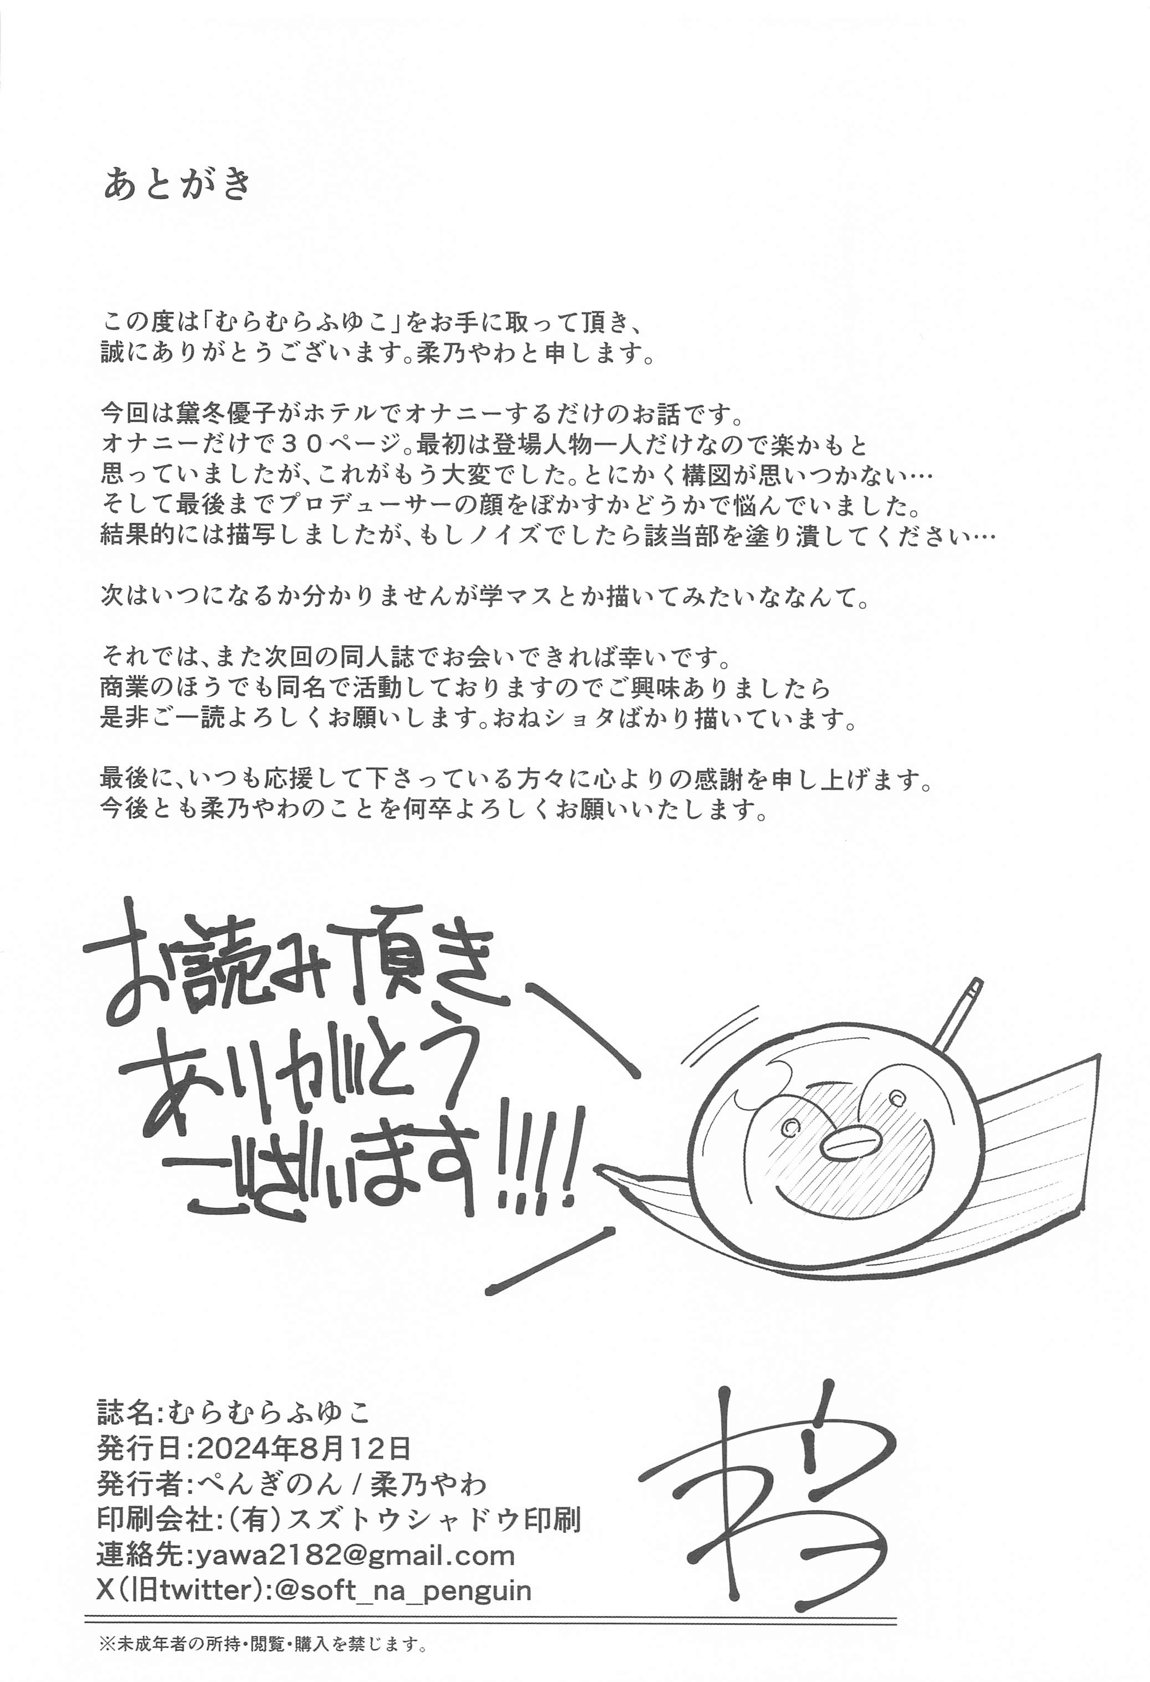 あとがき
この度は「むらむらふゆこ」をお手に取って頂き、
誠にありがとうございます。柔乃やわと申します。
今回は黛冬優子がホテルでオナニーするだけのお話です。
オナニーだけで３０ページ。最初は登場人物一人だけなので楽かもと
思っていましたが、これがもう大変でした。とにかく構図が思いつかない…
そして最後までプロデューサーの顔をぼかすかどうかで悩んでいました。
結果的には描写しましたが、もしノイズでしたら該当部を塗り潰してください…
次はいつになるか分かりませんが学マスとか描いてみたいななんて。
それでは、また次回の同人誌でお会いできれば幸いです。
商業のほうでも同名で活動しておりますのでご興味ありましたら
是非ご一読よろしくお願いします。おねショタばかり描いています。
最後に、いつも応援して下さっている方々に心よりの感謝を申し上げます。
今後とも柔乃やわのことを何卒よろしくお願いいたします。
お読み頂き
ありがとう
ございます!!!!
誌名:むらむらふゆこ
発行日:2024年8月12日
発行者:ぺんぎのん / 柔乃やわ
印刷会社:(有)スズトウシャドウ印刷
連絡先:yawa2182@gmail.com
X(旧twitter):@soft_na_penguin
※未成年者の所持・閲覧・購入を禁じます。